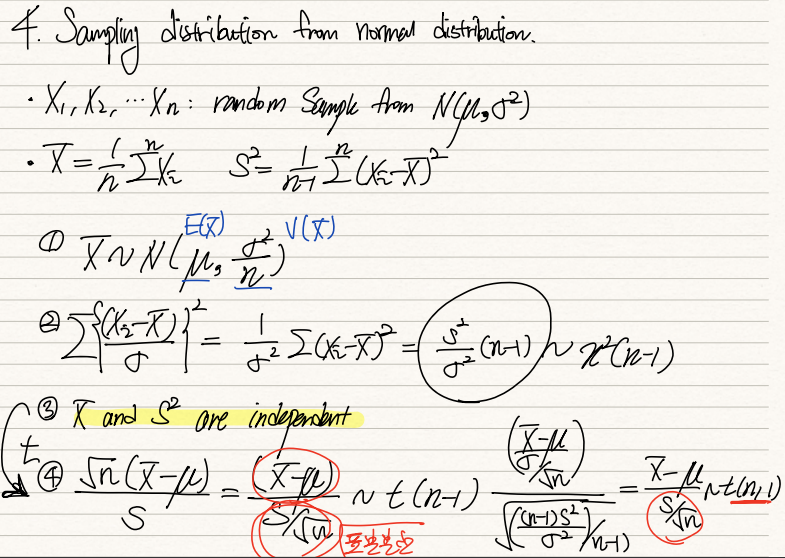 4. Sampling distribution from normal distribution.
· X₁, X₂, ⋯ Xn : random sample from N(μ, σ²)
· X̄ = 1/n Σⁿ Xi   S² = 1/(n-1) Σⁿ (Xi - X̄)²
E(X̄) V(X̄)
① X̄ ~ N(μ, σ²/n)
② Σ{(Xi - X̄)/σ}² = 1/σ² Σ(Xi - X̄)² = S²/σ² (n-1) ~ χ²(n-1)
③ X̄ and S² are independent
t
④ √n(X̄-μ)/S = (X̄-μ)/(S/√n) ~ t(n-1)   ((X̄-μ)/(σ/√n))/√(((n-1)S²/σ²)/(n-1)) = (X̄-μ)/(S/√n) ~ t(n-1)
표본분산